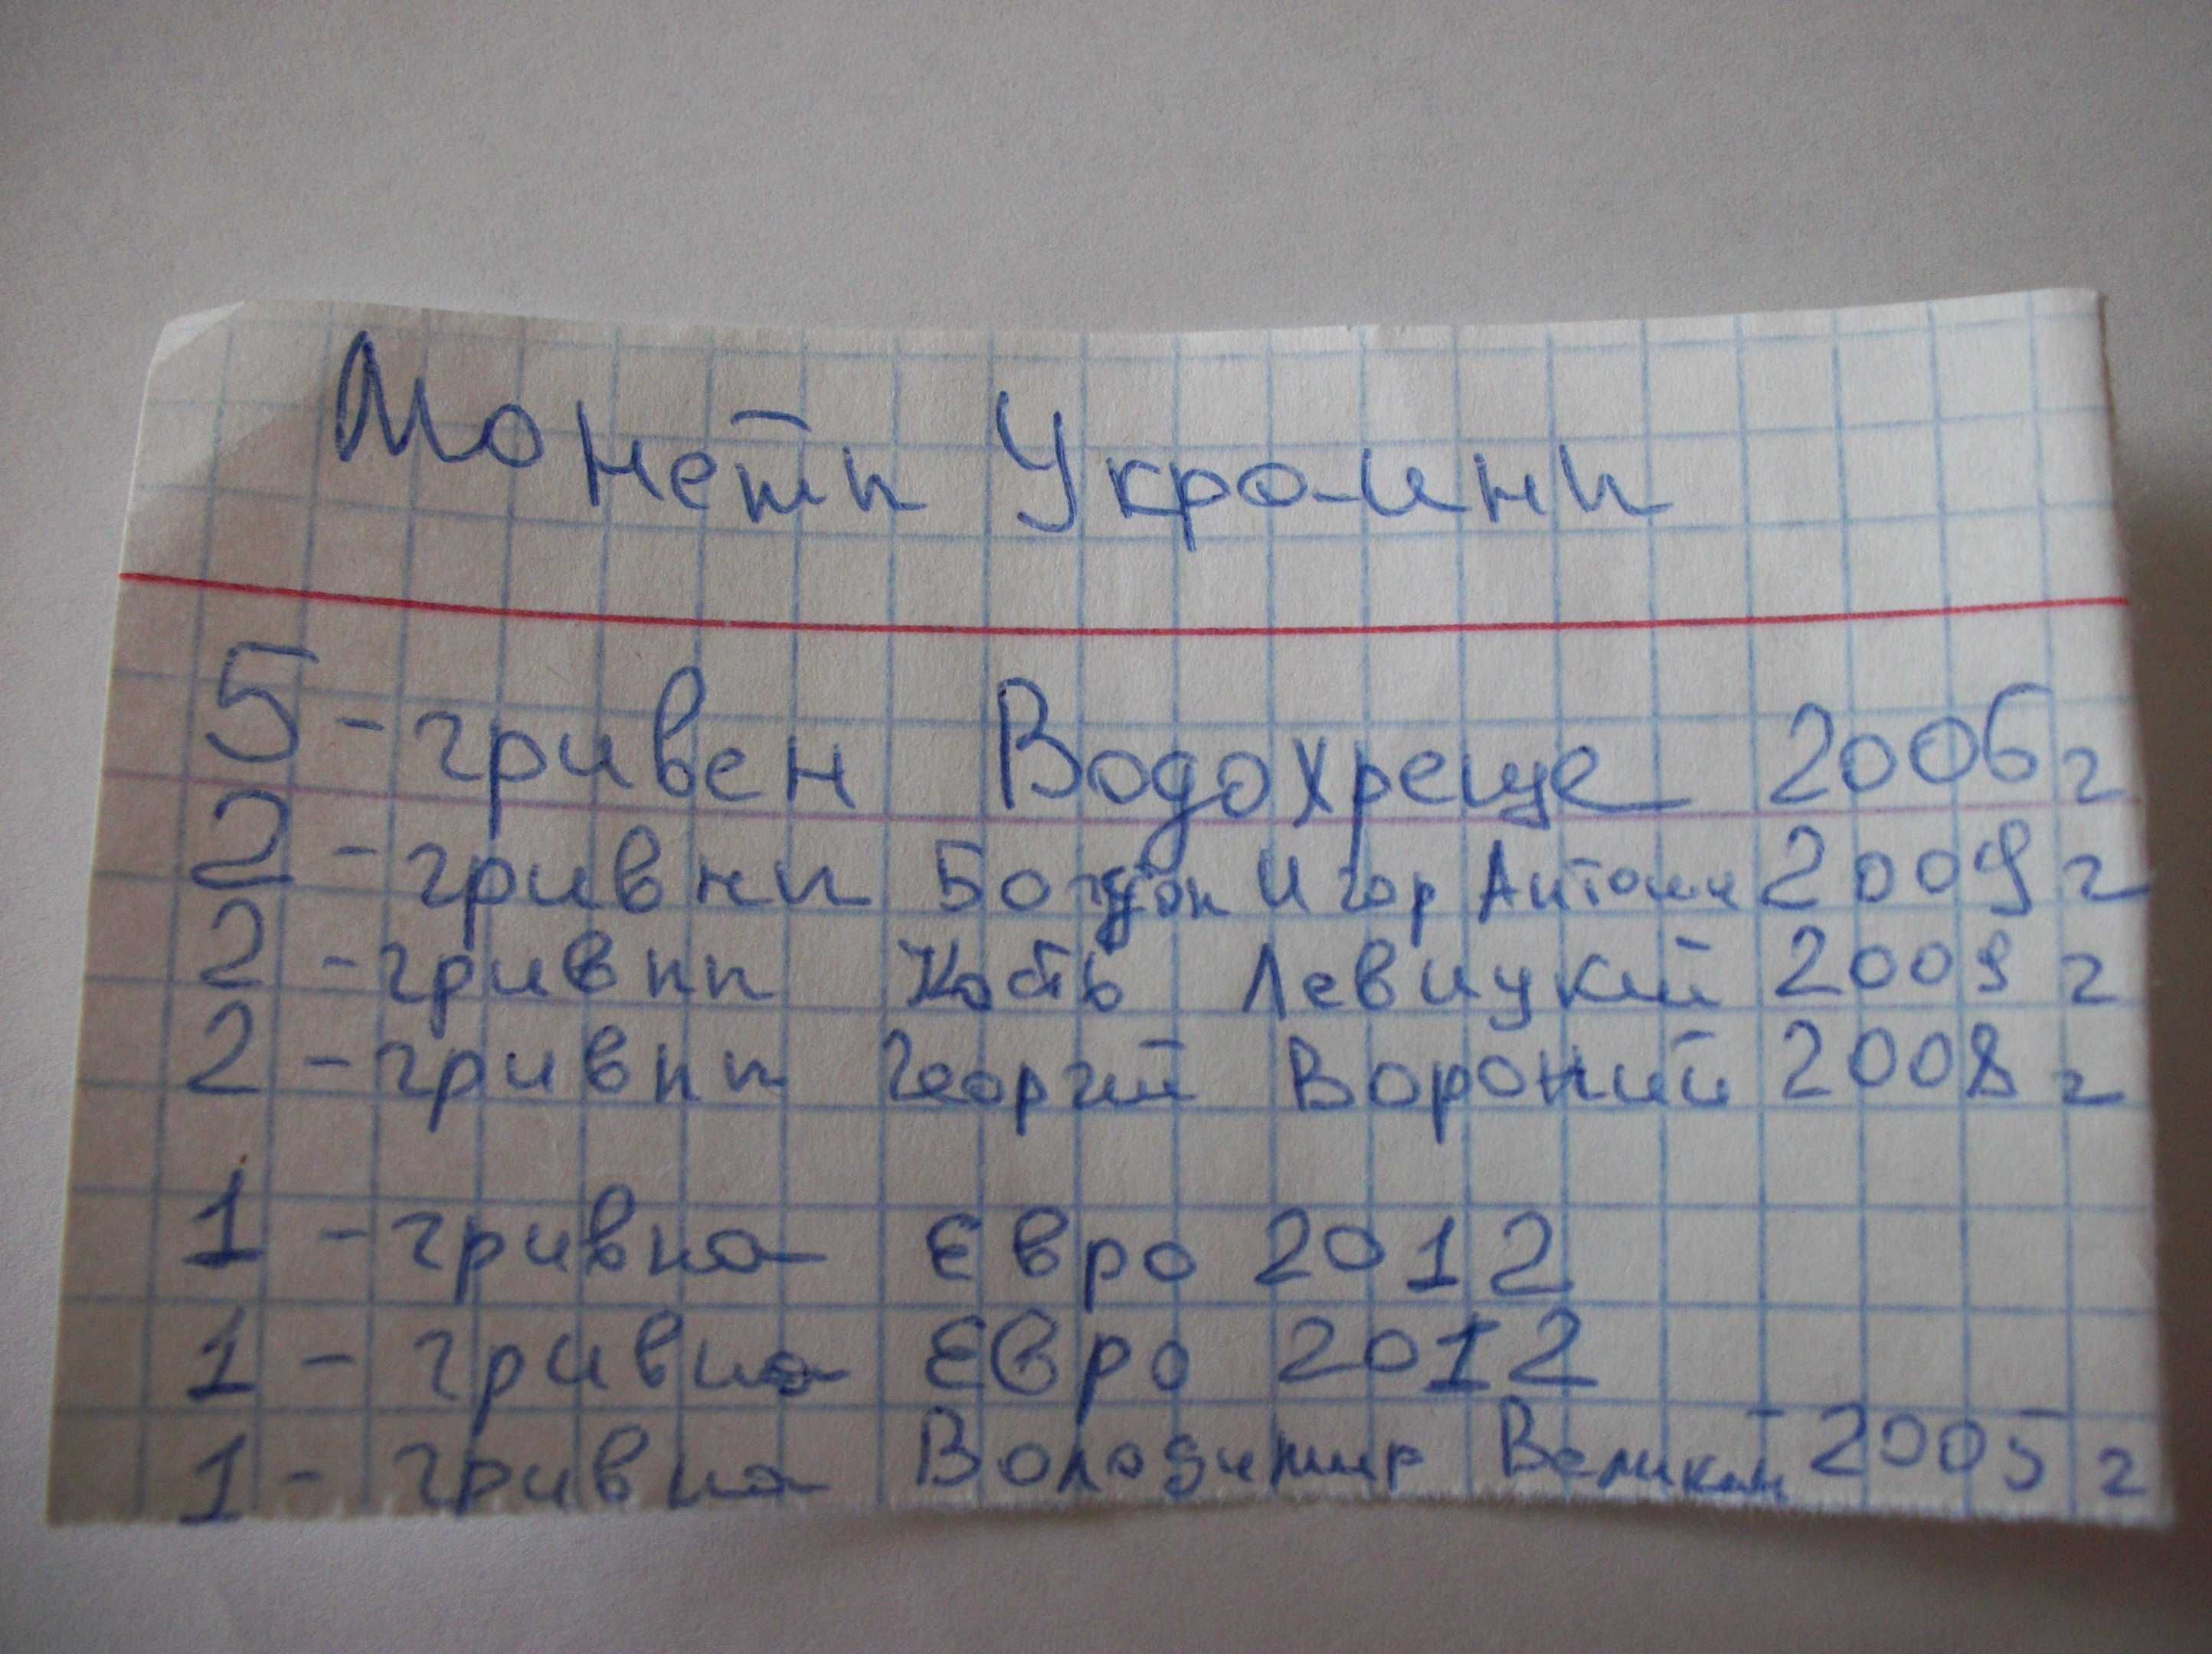 Монети Украини
5 - гривен Водохреще 2006 г
2 - гривни Богдан Игор Антонич 2009 г
2 - гривни Кость Левицкий 2009 г
2 - гривни Георгий Вороний 2008 г
1 - гривна Евро 2012
1 - гривна Евро 2012
1 - гривна Володимир Великий 2005 г